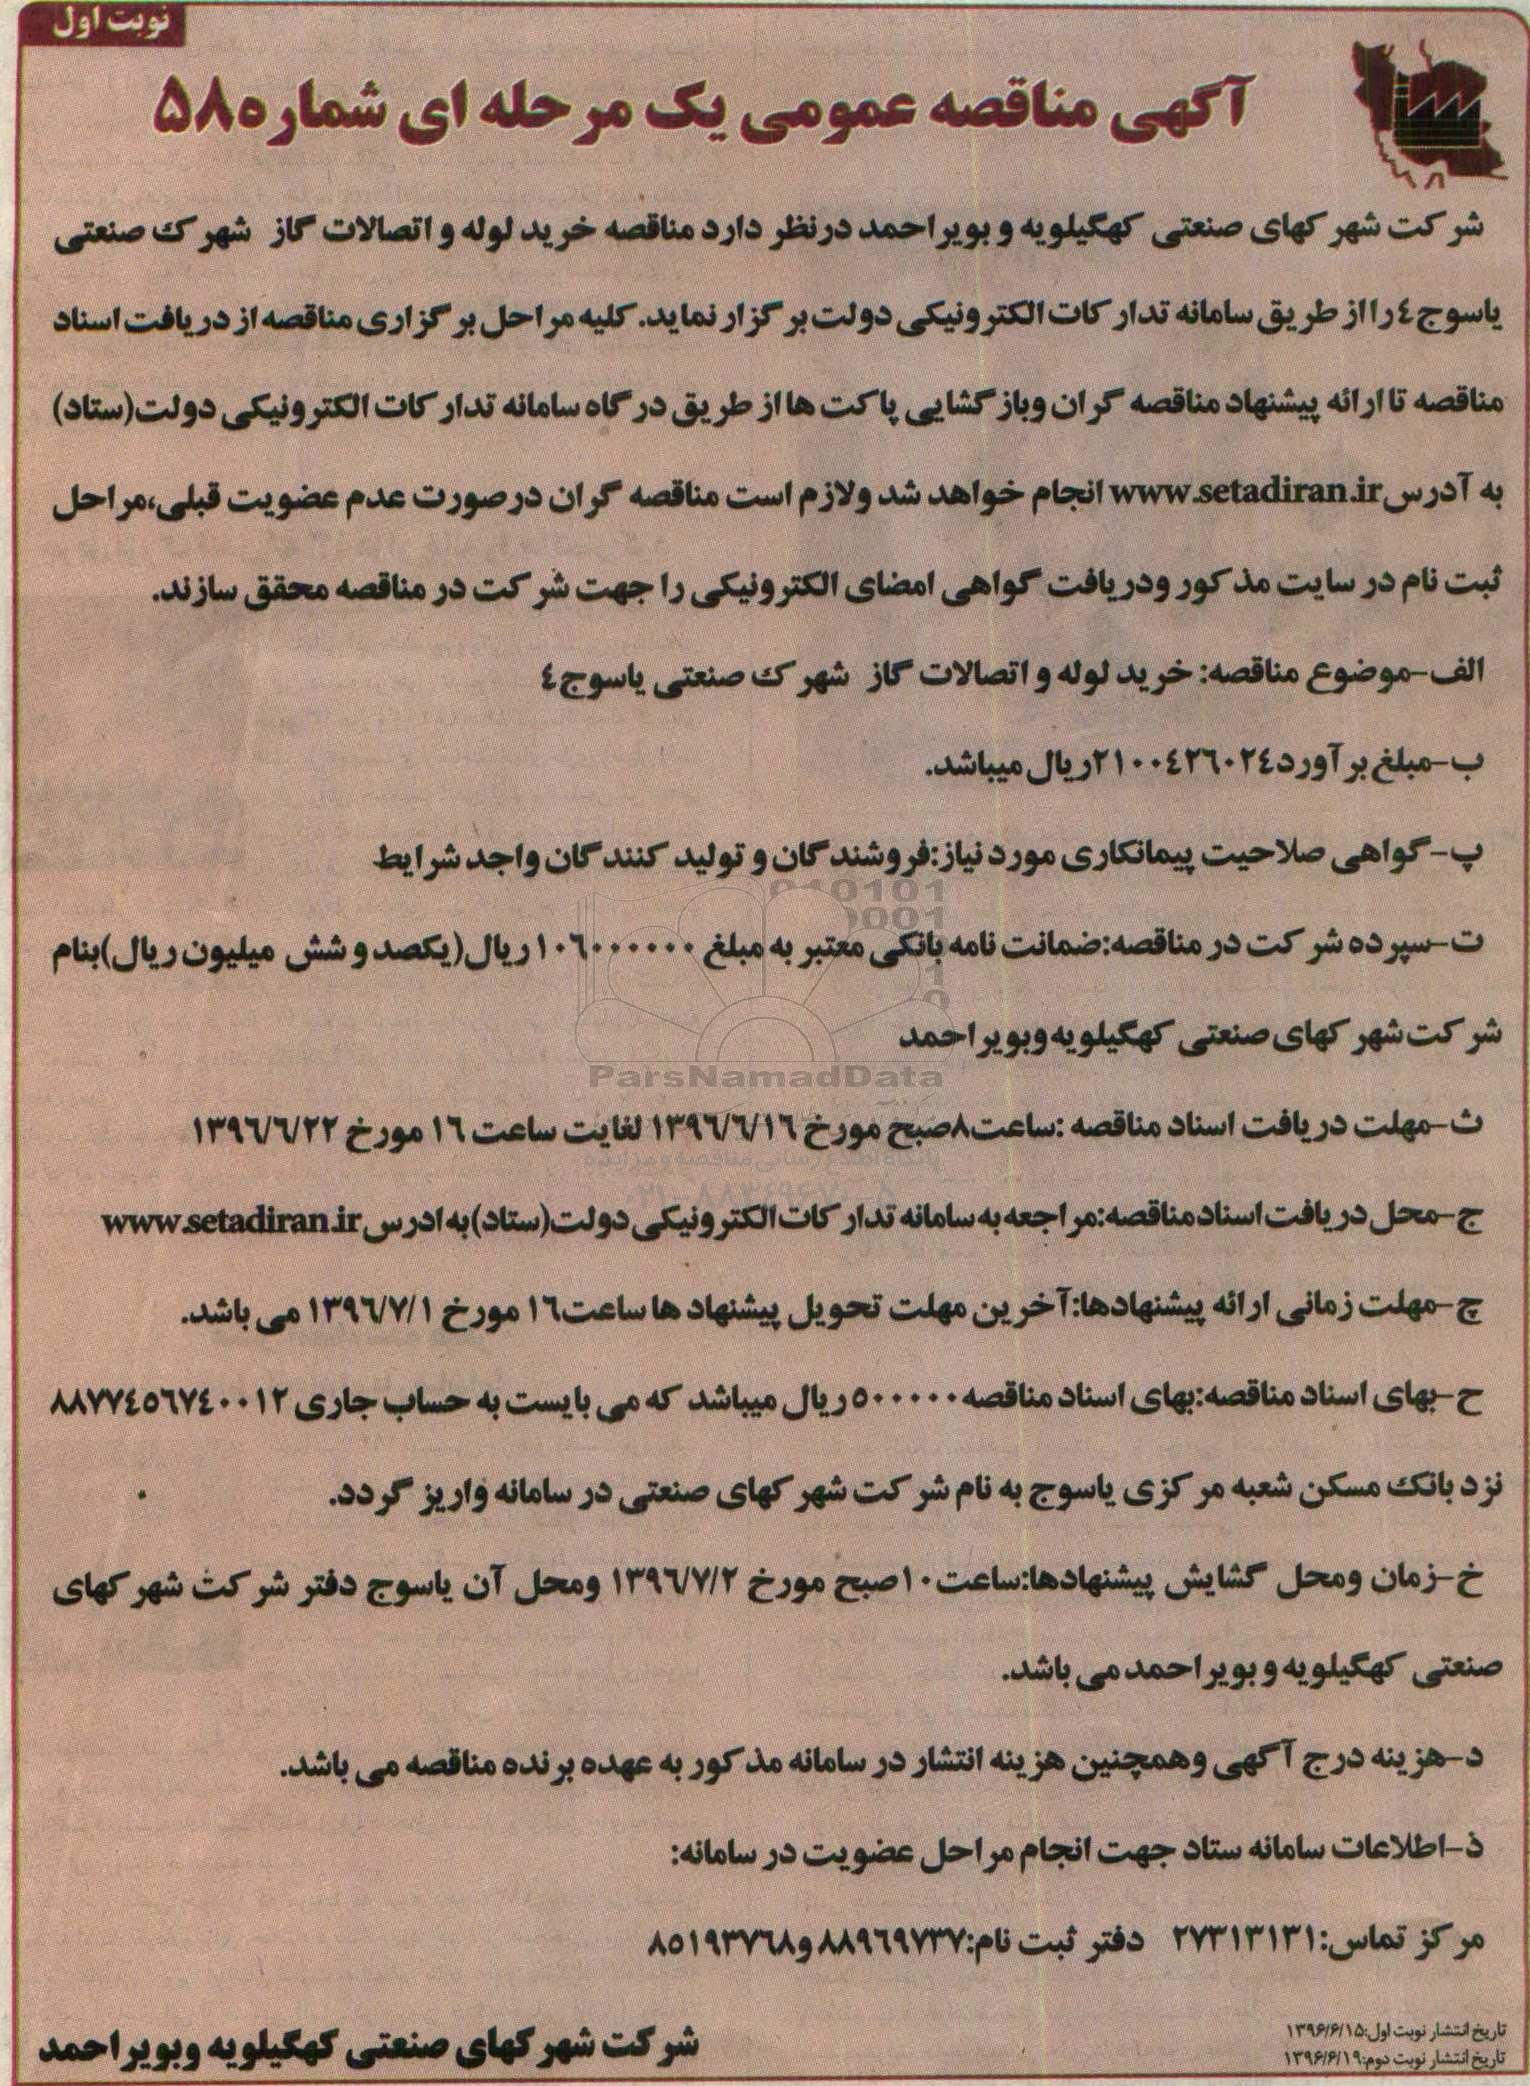 نوبت اول
آگهی مناقصه عمومی یک مرحله ای شماره ۵۸
شرکت شهرکهای صنعتی کهگیلویه و بویراحمد درنظر دارد مناقصه خرید لوله و اتصالات گاز شهرک صنعتی
یاسوج ٤ را از طریق سامانه تدارکات الکترونیکی دولت برگزار نماید. کلیه مراحل برگزاری مناقصه از دریافت اسناد
مناقصه تا ارائه پیشنهاد مناقصه گران وبازگشایی پاکت ها از طریق درگاه سامانه تدارکات الکترونیکی دولت(ستاد)
به آدرس www.setadiran.ir انجام خواهد شد ولازم است مناقصه گران درصورت عدم عضویت قبلی،مراحل
ثبت نام در سایت مذکور ودریافت گواهی امضای الکترونیکی را جهت شرکت در مناقصه محقق سازند.
الف-موضوع مناقصه: خرید لوله و اتصالات گاز شهرک صنعتی یاسوج ٤
ب-مبلغ برآورد ۲۱۰۰٤۲٦۰۲٤ریال میباشد.
پ-گواهی صلاحیت پیمانکاری مورد نیاز:فروشندگان و تولید کنندگان واجد شرایط
ت-سپرده شرکت در مناقصه:ضمانت نامه بانکی معتبر به مبلغ ۱۰٦۰۰۰۰۰۰ ریال(یکصد و شش میلیون ریال)بنام
شرکت شهرکهای صنعتی کهگیلویه وبویراحمد
ParsNamadData
ث-مهلت دریافت اسناد مناقصه :ساعت۸صبح مورخ ۱۳۹٦/٦/۱٦ لغایت ساعت ۱٦ مورخ ۱۳۹٦/٦/۲۲
پایگاه اطلاع رسانی مناقصه و مزایده
ج-محل دریافت اسناد مناقصه:مراجعه به سامانه تدارکات الکترونیکی دولت(ستاد)به ادرس www.setadiran.ir
چ-مهلت زمانی ارائه پیشنهادها:آخرین مهلت تحویل پیشنهاد ها ساعت۱٦ مورخ ۱۳۹٦/۷/۱ می باشد.
ح-بهای اسناد مناقصه:بهای اسناد مناقصه ۵۰۰۰۰۰ ریال میباشد که می بایست به حساب جاری ۸۸۷۷٤۵٦۷٤۰۰۱۲
نزد بانک مسکن شعبه مرکزی یاسوج به نام شرکت شهرکهای صنعتی در سامانه واریز گردد.
خ-زمان ومحل گشایش پیشنهادها:ساعت۱۰صبح مورخ ۱۳۹٦/۷/۲ ومحل آن یاسوج دفتر شرکت شهرکهای
صنعتی کهگیلویه و بویراحمد می باشد.
د-هزینه درج آگهی وهمچنین هزینه انتشار در سامانه مذکور به عهده برنده مناقصه می باشد.
ذ-اطلاعات سامانه ستاد جهت انجام مراحل عضویت در سامانه:
مرکز تماس:۲۷۳۱۳۱۳۱ دفتر ثبت نام:۸۸۹٦۹۷۳۷ و۸۵۱۹۳۷٦۸
تاریخ انتشار نوبت اول:۱۳۹۶/۶/۱۵
تاریخ انتشار نوبت دوم:۱۳۹۶/۶/۱۹
شرکت شهرکهای صنعتی کهگیلویه وبویراحمد